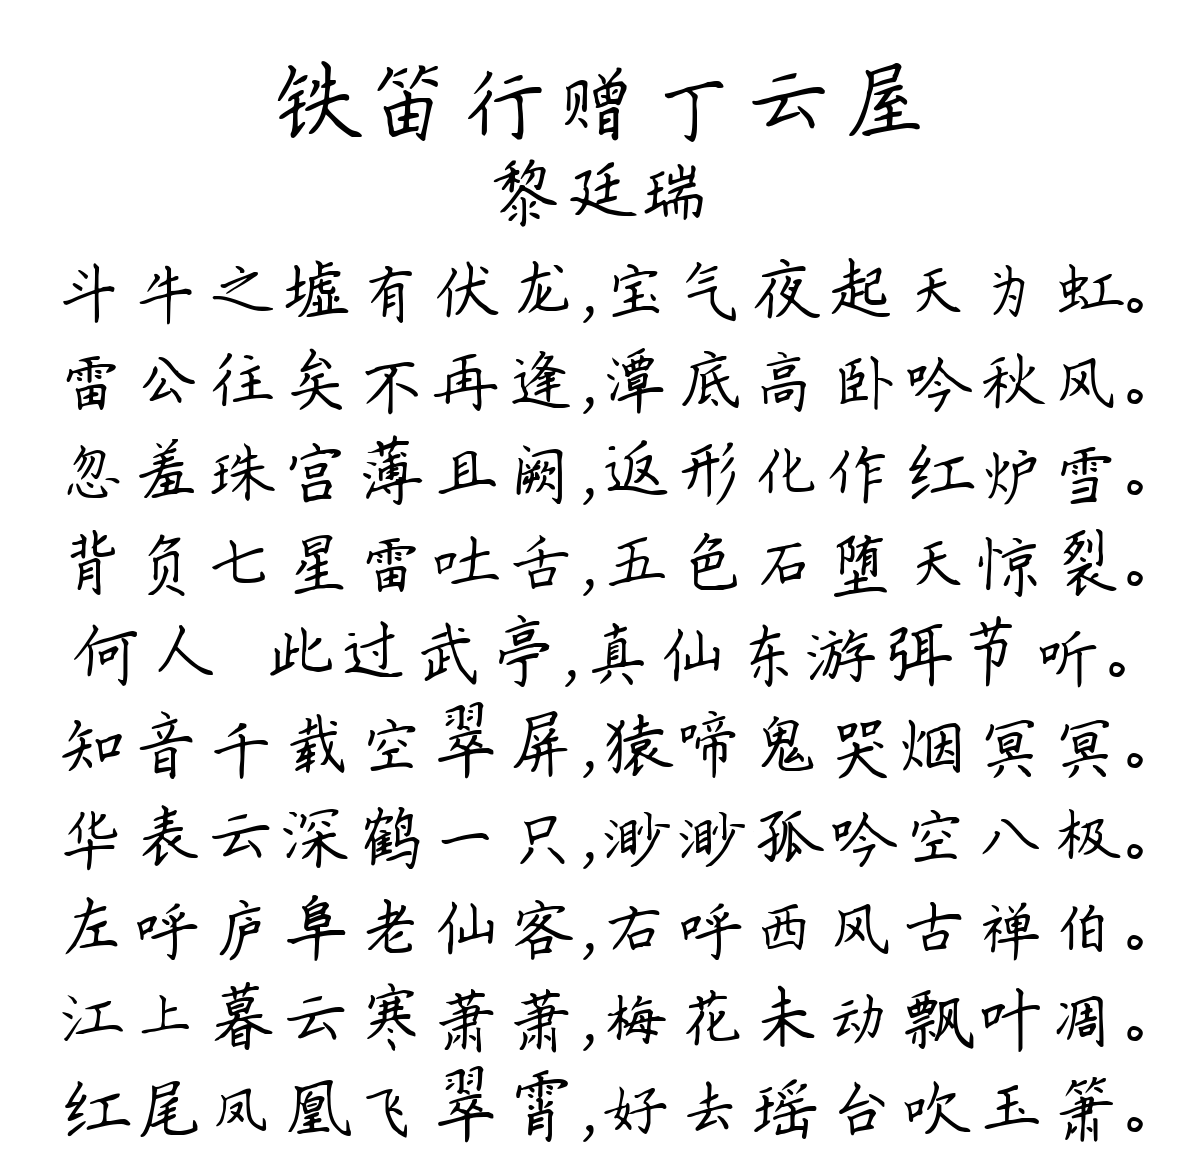 铁笛行赠丁云屋
黎廷瑞
斗牛之墟有伏龙,宝气夜起天为虹。
雷公往矣不再逢,潭底高卧吟秋风。
忽羞珠宫薄且阙,返形化作红炉雪。
背负七星雷吐舌,五色石堕天惊裂。
何人 此过武亭,真仙东游弭节听。
知音千载空翠屏,猿啼鬼哭烟冥冥。
华表云深鹤一只,渺渺孤吟空八极。
左呼庐阜老仙客,右呼西风古禅伯。
江上暮云寒萧萧,梅花未动飘叶凋。
红尾凤凰飞翠霄,好去瑶台吹玉箫。